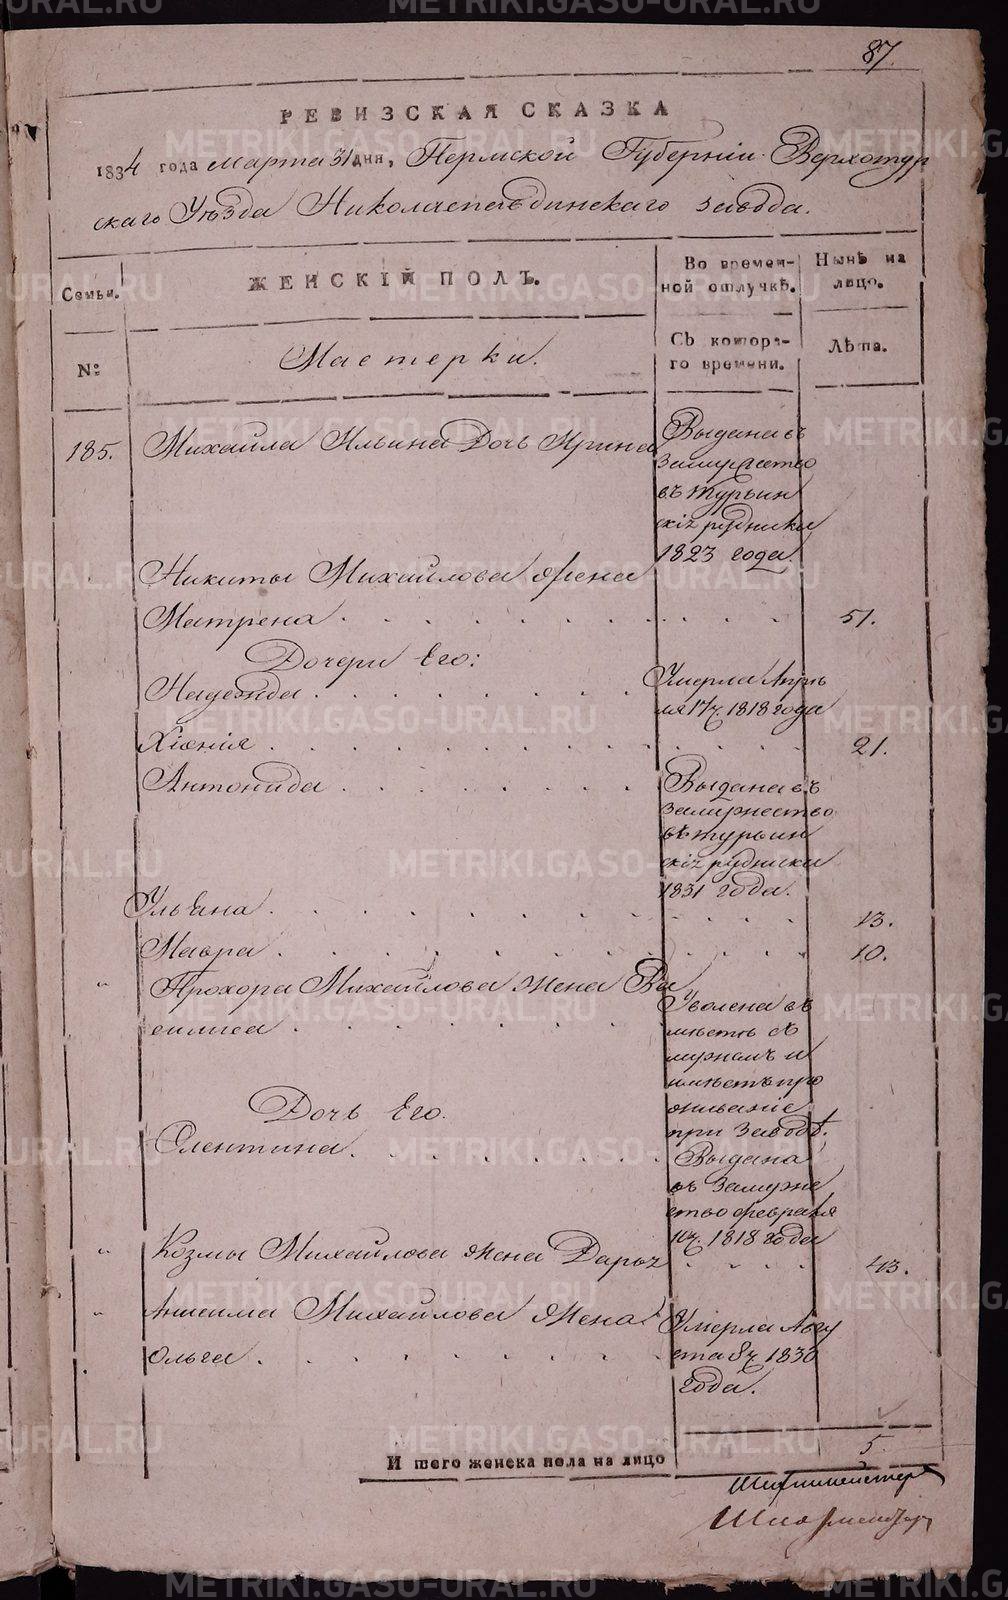 87.
РЕВИЗСКАЯ СКАЗКА
1834 года марта 31 дня, Пермской Губерніи Верхотур
скаго Уѣзда Николаепавдинскаго завода.
Семьи.
ЖЕНСКІЙ ПОЛЪ.
Во времен-
ной отлучкѣ.
Нынѣ на
лицо.
№
Мастерки.
Съ котора-
го времени.
Лѣта.
185.
Михайла Ильина Дочь Ирина
Выдана въ
замужество
въ турьин
скіе рудники
1823 года.
Никиты Михайлова Жена
Матрена
51.
Дочери Его:
Надежда
Умерла Апрѣ
ля 17 ч. 1818 года
Хіонія
21.
Антонида
Выдана въ
замужество
въ турьин
скіе рудники
1831 года.
Ульяна
13.
Мавра
10.
Прохора Михайлова Жена Ва
силиса
Уволена в
мѣстѣ съ
мужемъ и
имѣетъ про
живаніе
при заводѣ.
Дочь Его.
Олентина
Выдана
въ замуже
ство февраля
10 ч. 1818 года
Козмы Михайлова Жена Дарья
43.
Анисима Михайлова Жена
Ольга
Умерла Авгу
ста 8 ч. 1830
года.
И того женска пола на лицо
5.
Шихтмейстер
METRIKI.GASO-URAL.RU